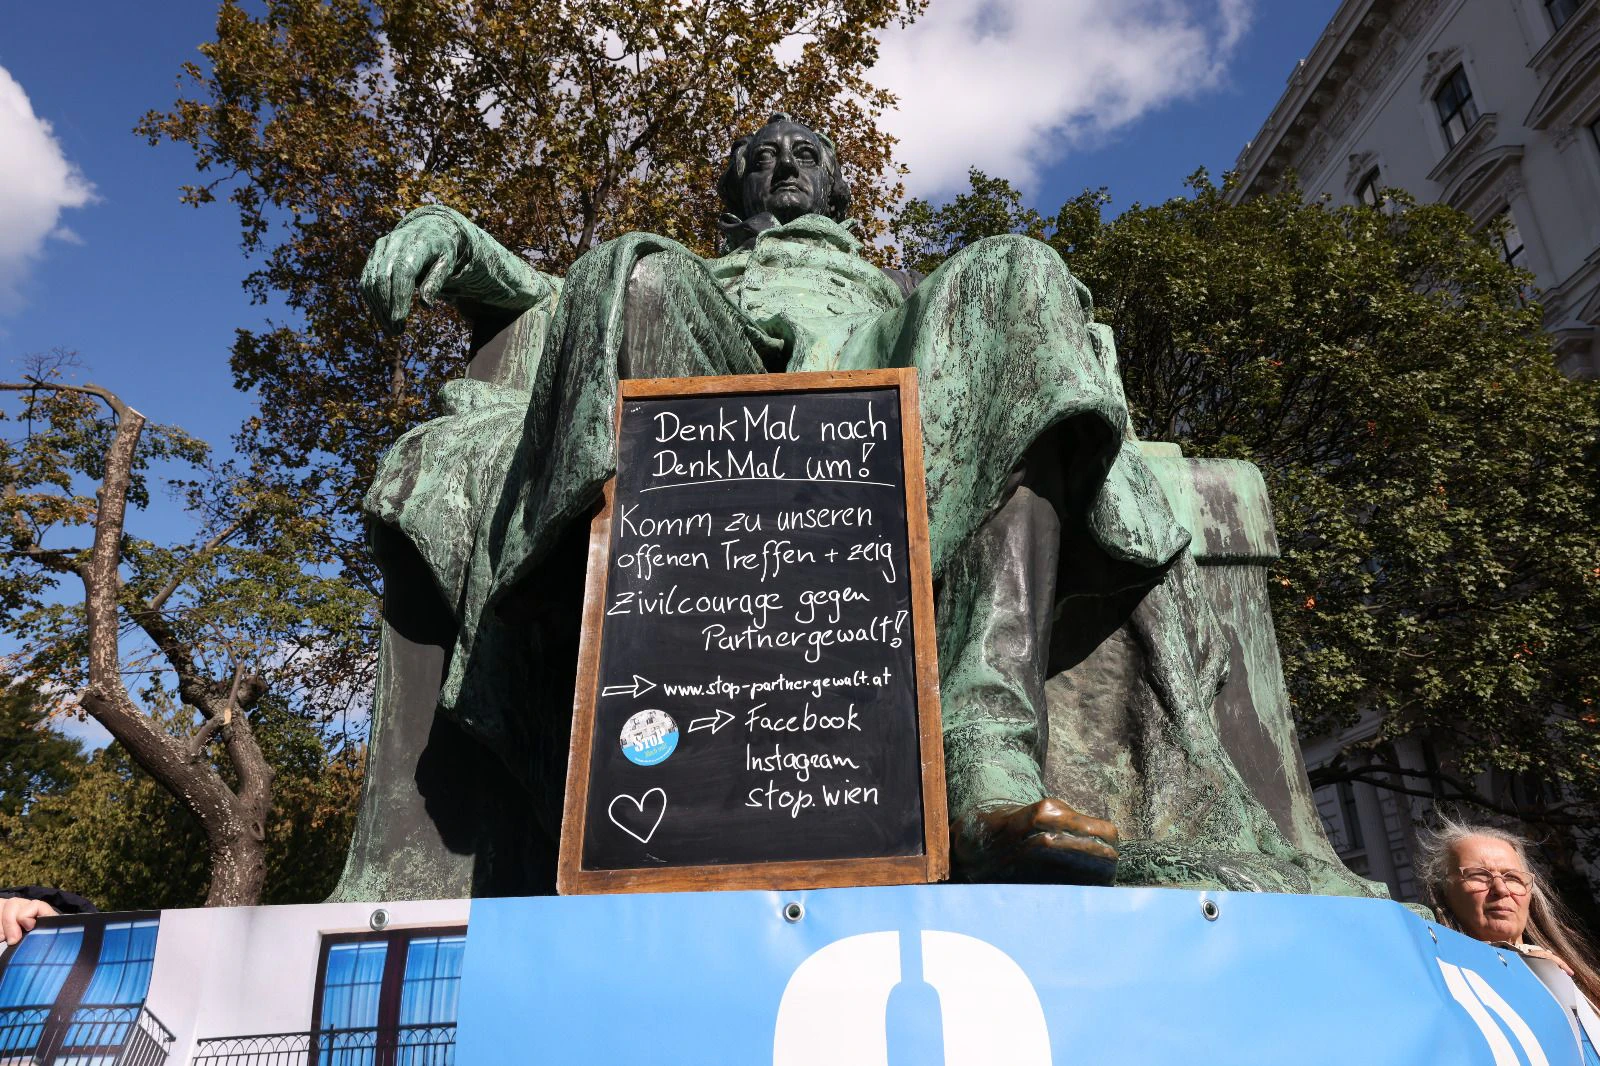 DenkMal nach
DenkMal um!
Komm zu unseren
offenen Treffen + zeig
Zivilcourage gegen
Partnergewalt!
www.stop-partnergewalt.at
STOP
Facebook
Instagram
stop.wien